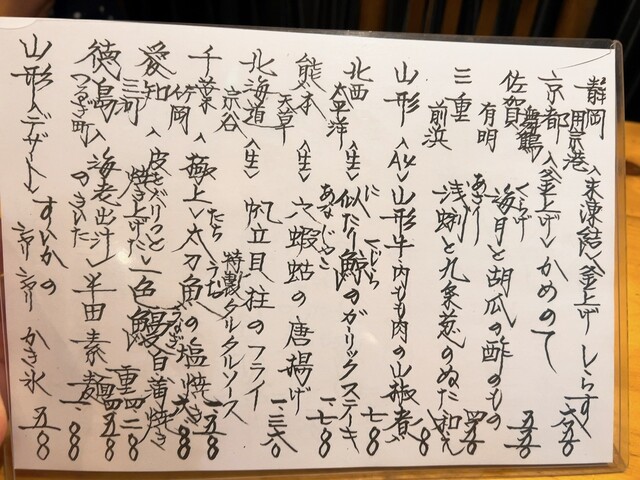 静岡 用宗港 <未凍結> 釜上げしらす 六五〇
京都 舞鶴 <釜上げ> かめのて 五五〇
佐賀 有明 海月と胡瓜の酢のもの 四五〇
三重 前浜 浅蜊と九条葱のぬた和え
山形 <A4> 山形牛内もも肉の山椒煮 八〇
北西太平洋 <生> 似たり鯨のガーリックステーキ 一、七八〇
熊本 天草 <生> 穴蝦蛄の唐揚げ 一、三六〇
北海道 宗谷 <生> 帆立貝柱のフライ 特製タルタルソース 一、五〇
千葉 竹岡 <極上> 太刀魚の塩焼き 一、六八〇
愛知 三河 <皮もパリっと焼き上げた> 一色鰻白蒲焼き 一、四八〇 重四、二八〇
徳島 つるぎ町 <海老出汁> 半田素麺 一、四五〇
山形 <デザート> すいかのシャリシャリかき氷 五八〇